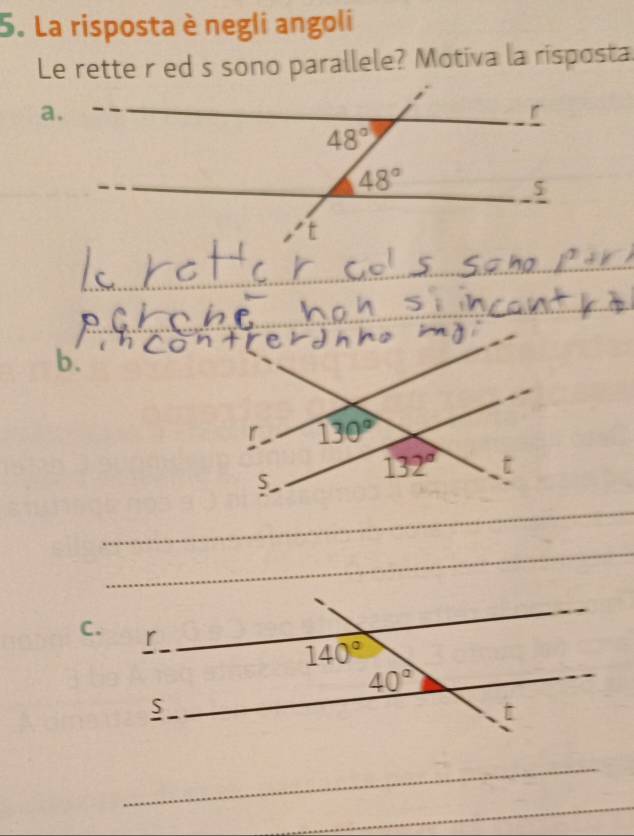 5. La risposta è negli angoli
Le rette r ed s sono parallele? Motiva la risposta.
a.
r
48°
48°
s
t
le rette r ed s sono par
perché non si incontra
incontreranno mai
b.
r
130°
132°
t
s
c.
r
140°
40°
s
t